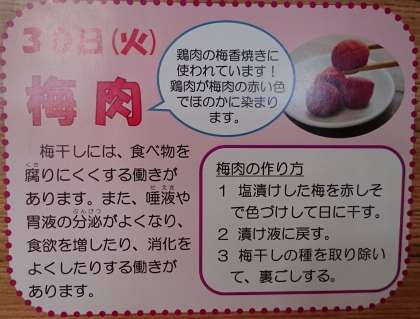 30日(火)
梅肉
鶏肉の梅香焼きに
使われています!
鶏肉が梅肉の赤い色
でほのかに染まり
ます。
梅干しには、食べ物を
腐りにくくする働きが
あります。また、唾液や
胃液の分泌がよくなり、
食欲を増したり、消化を
よくしたりする働きが
あります。
梅肉の作り方
1 塩漬けした梅を赤しそ
で色づけして日に干す。
2 漬け液に戻す。
3 梅干しの種を取り除い
て、裏ごしする。